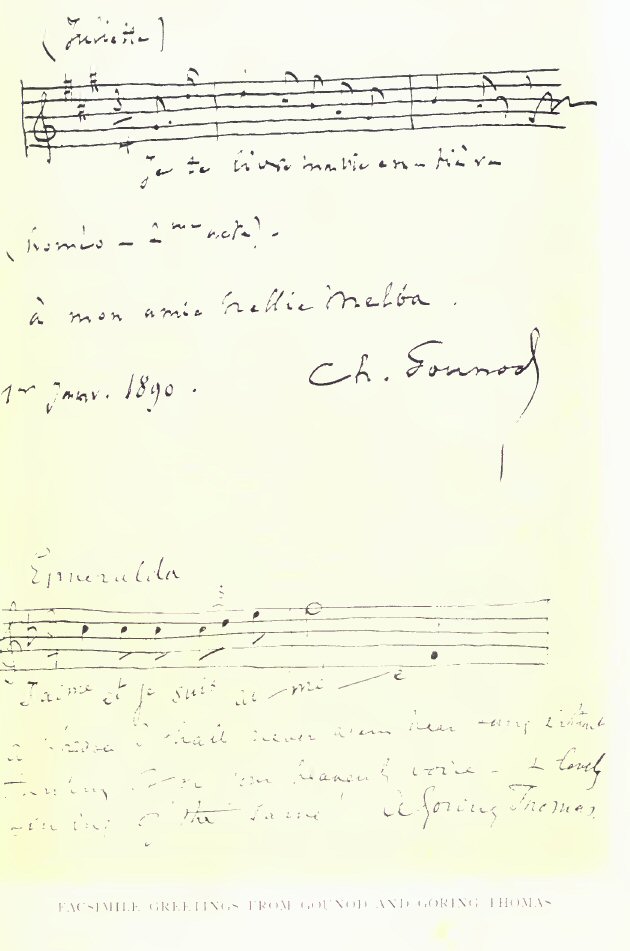 (Juliette)
Je te livre ma vie en-tière
(Roméo — 2me acte).
à mon amie Nellie Melba.
Ch. Gounod
1er Janv. 1890.
Esmeralda
J'aime et je suis ai — mé — e
I shall never again hear sung without
thinking of your heavenly voice — & lovely
singing of the same! A Goring Thomas.
FACSIMILE GREETINGS FROM GOUNOD AND GORING THOMAS